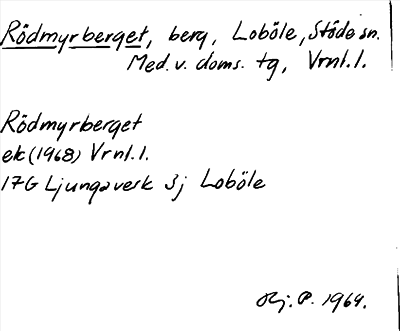 Rödmyrberget, berg, Loböle, Stöde sn.
Med. v. doms. tg, Vrnl. l.
Rödmyrberget
ek (1968) Vrnl. l.
17G Ljungaverk 3j Loböle
P. 1964.